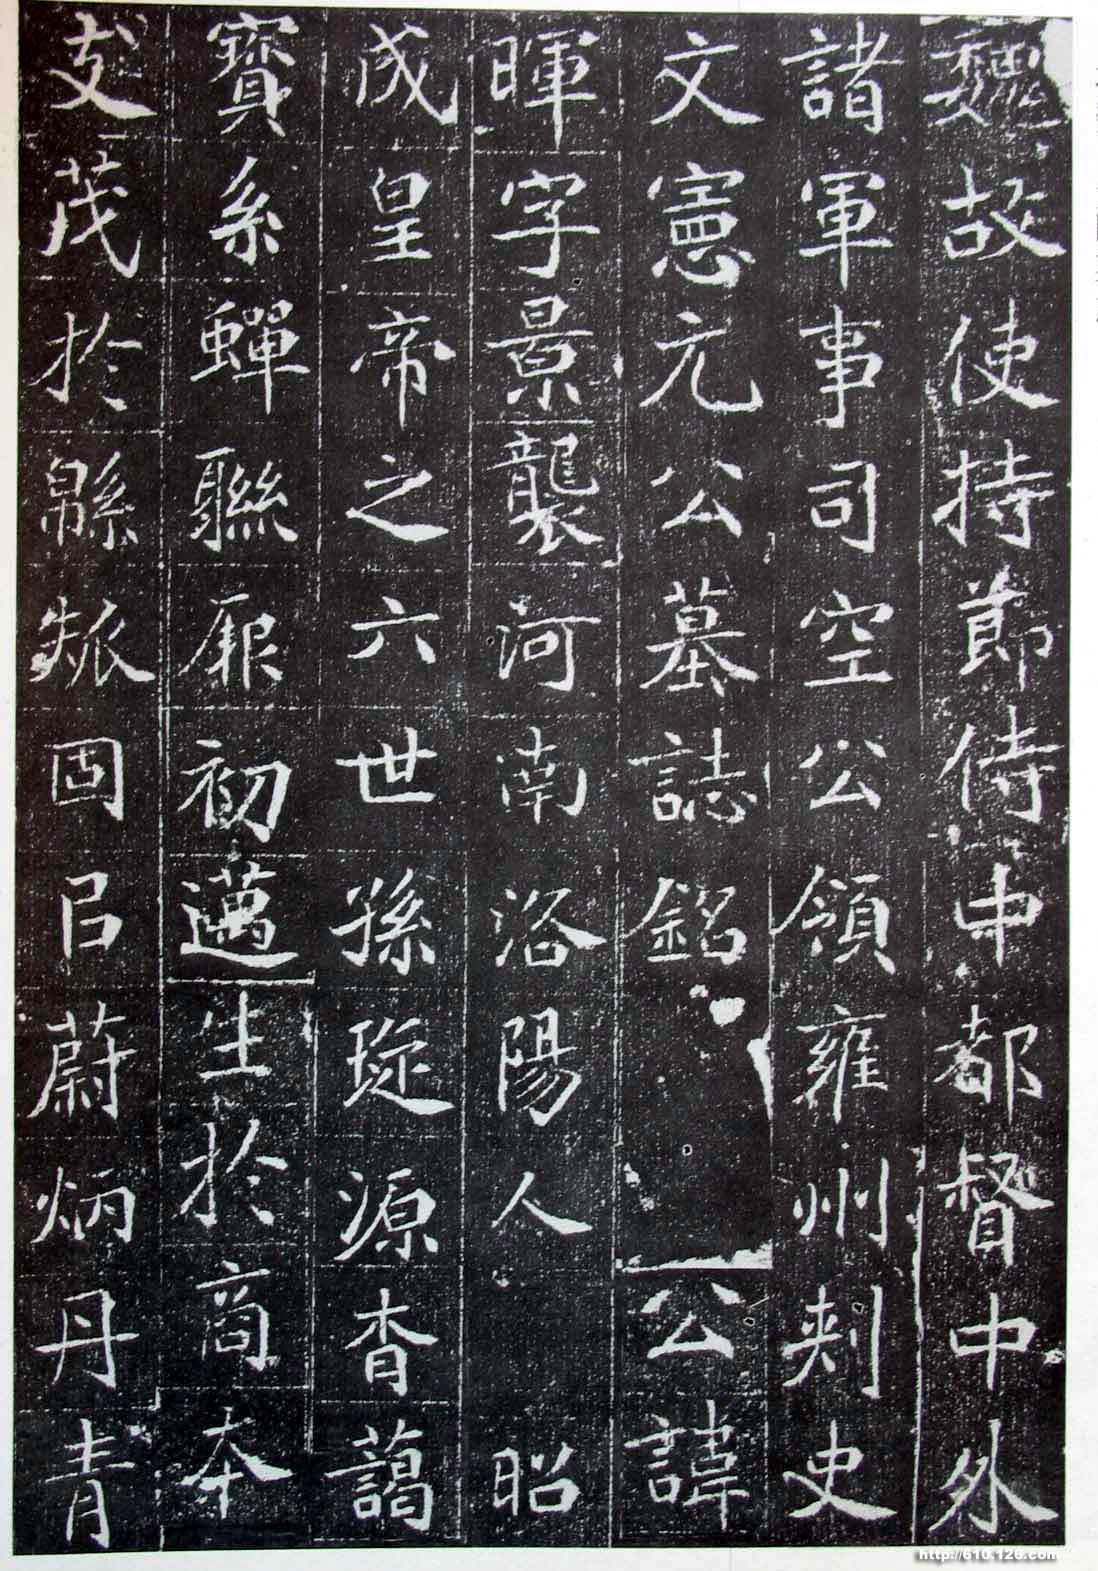 魏故使持節侍中都督中外
諸軍事司空公領雍州刺史
文憲元公墓誌銘 公諱
暉字景襲河南洛陽人 昭
成皇帝之六世孫琁源杳藹
寶系蟬聯厥初邁生於商本
支茂於緜瓞固㠯蔚炳丹青
http://610.126.com